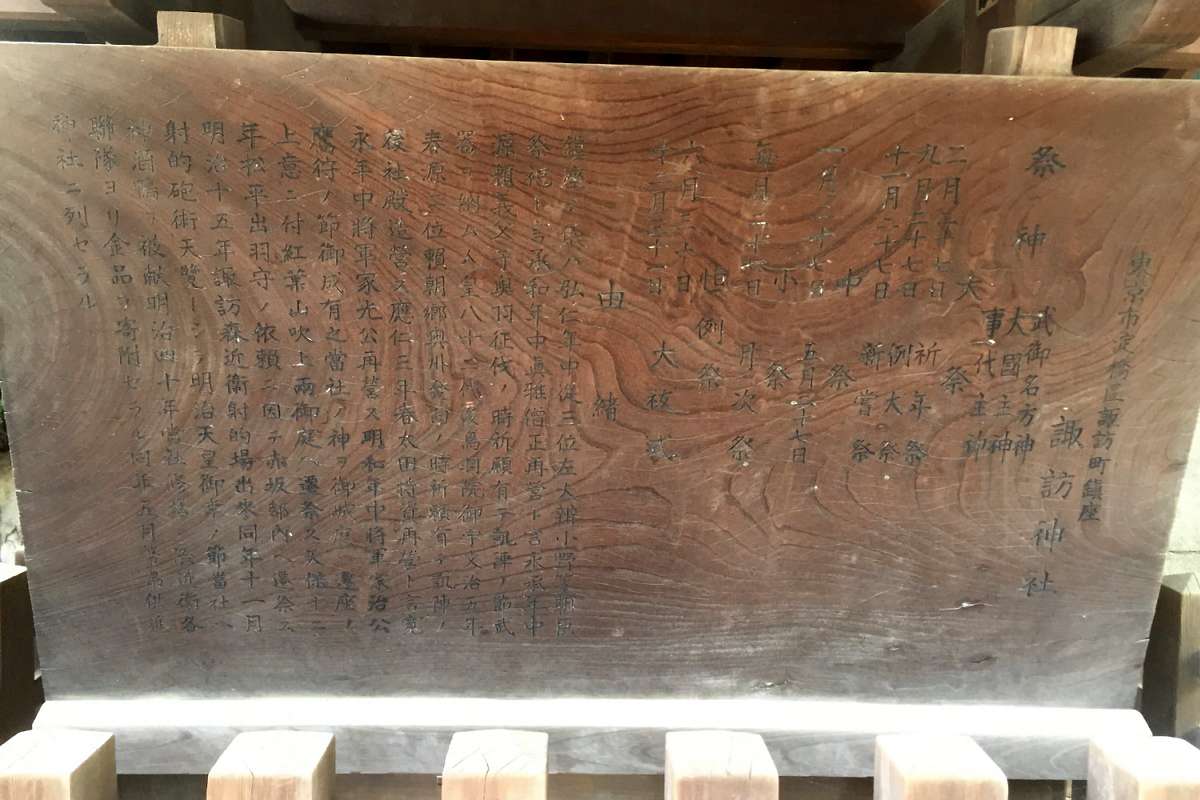 東京市淀橋區諏訪町鎮座
諏訪神社
祭神
武御名方神
大國主神
事代主神
大祭
二月二十七日 祈年祭
九月二十七日 例大祭
十一月二十七日 新嘗祭
中祭
一月二十七日 五月二十七日
小祭
毎月二十七日 月次祭
恒例祭
六月三十日
十二月三十一日 大祓式
由緒
鎮座 八弘仁年中從三位左大辨小野篁
祭 ト言承和年中眞雅僧正再營ト言永承年中
源賴義父子奥羽征伐ノ時祈願有テ凱陣ノ節武
器ヲ納 人皇八十二代後鳥羽院御宇文治五年
春原二位賴朝郷奥州發向ノ時祈願有テ凱陣ノ
後社殿造營ス應仁三年春太田 再營ト言寛
永年中將軍家光公再營ス明和年中將軍家治公
鷹狩ノ節御成有之當社ノ神ヲ御城 遷座ノ
上意ニ付紅葉山吹上兩御庭ヘ遷祭ス天保十二
年松平出羽守ノ依賴ニ因テ赤坂邸內ヘ遷祭ス
明治十五年諏訪森近衛射的場出來同年十一月
射的砲術天覽 明治天皇御幸ノ節當社ヘ
神酒 被献明治四十年當社 近衛各
聯隊ヨリ金品ヲ寄附セラル同年五月 併進
神社ニ列セラル